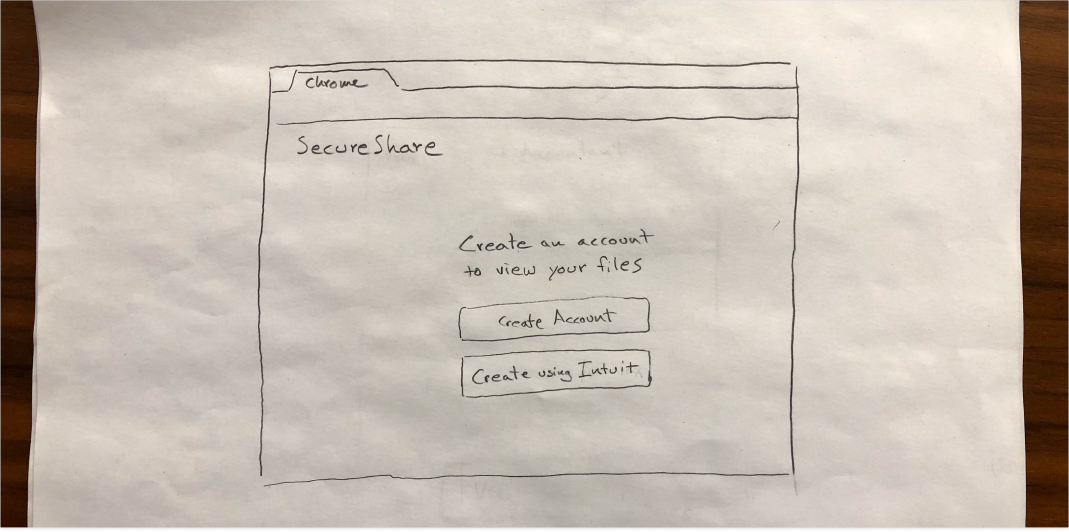 Chrome
SecureShare
Create an account
to view your files
Create Account
Create using Intuit